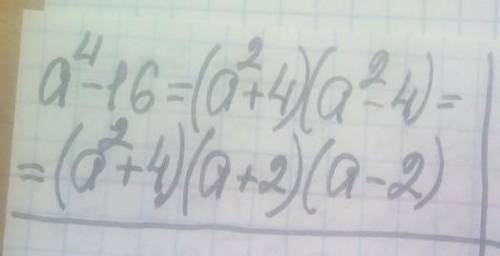 a⁴-16=(a²+4)(a²-4)=
=(a²+4)(a+2)(a-2)